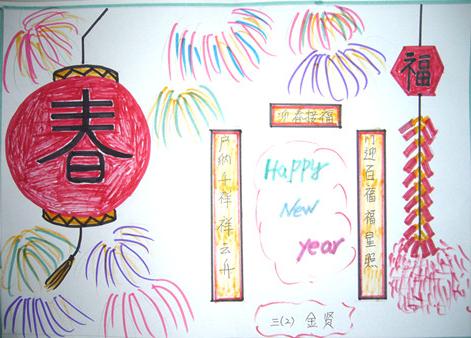 春
福
迎春接福
门迎百福福星照
户纳千祥祥云开
Happy
New
year
三(2) 金贤